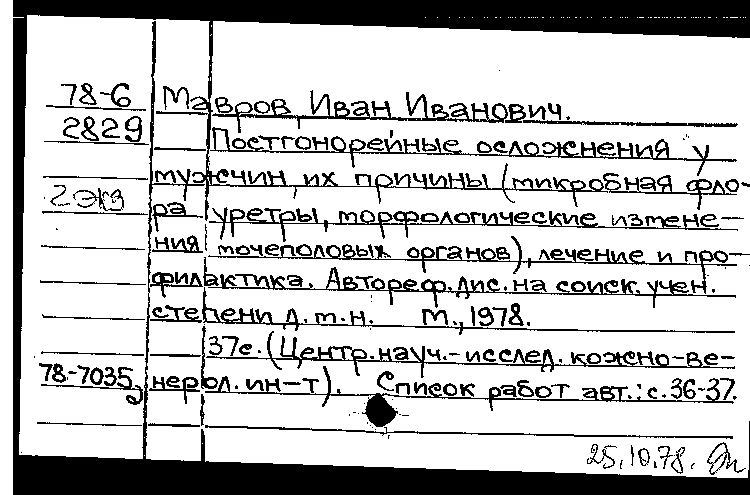 78-6 Мавров, Иван Иванович.
2829 Постгонорейные осложнения у
мужчин, их причины (микробная фло-
2 экз
ра уретры, морфологические измене-
ния мочеполовых органов), лечение и про-
филактика. Автореф. дис. на соиск. учен.
степени д.м.н. М., 1978.
37с. (Центр. науч.-исслед. кожно-ве-
78-7035 нерол. ин-т). Список работ авт.: с. 36-37.
25.10.78.